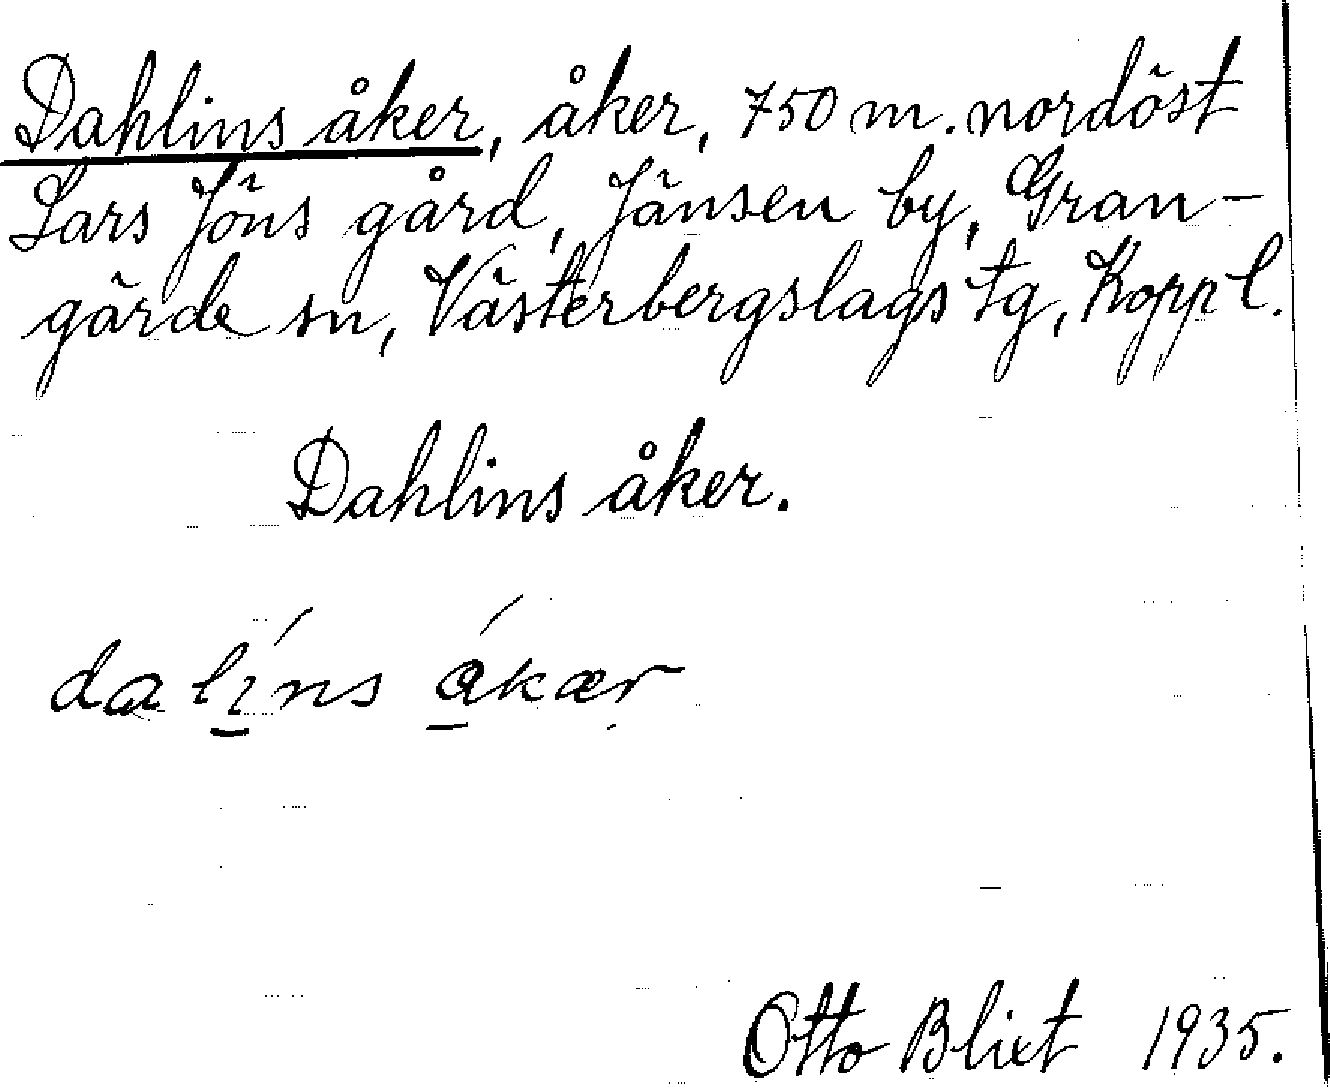 Dahlins åker, åker, 750 m. nordöst
Lars Jöns gård, Jänsen by, Gran-
gärde sn, Västerbergslags tg, Kopp l.
Dahlins åker.
dalíns ákær
Otto Blixt 1935.